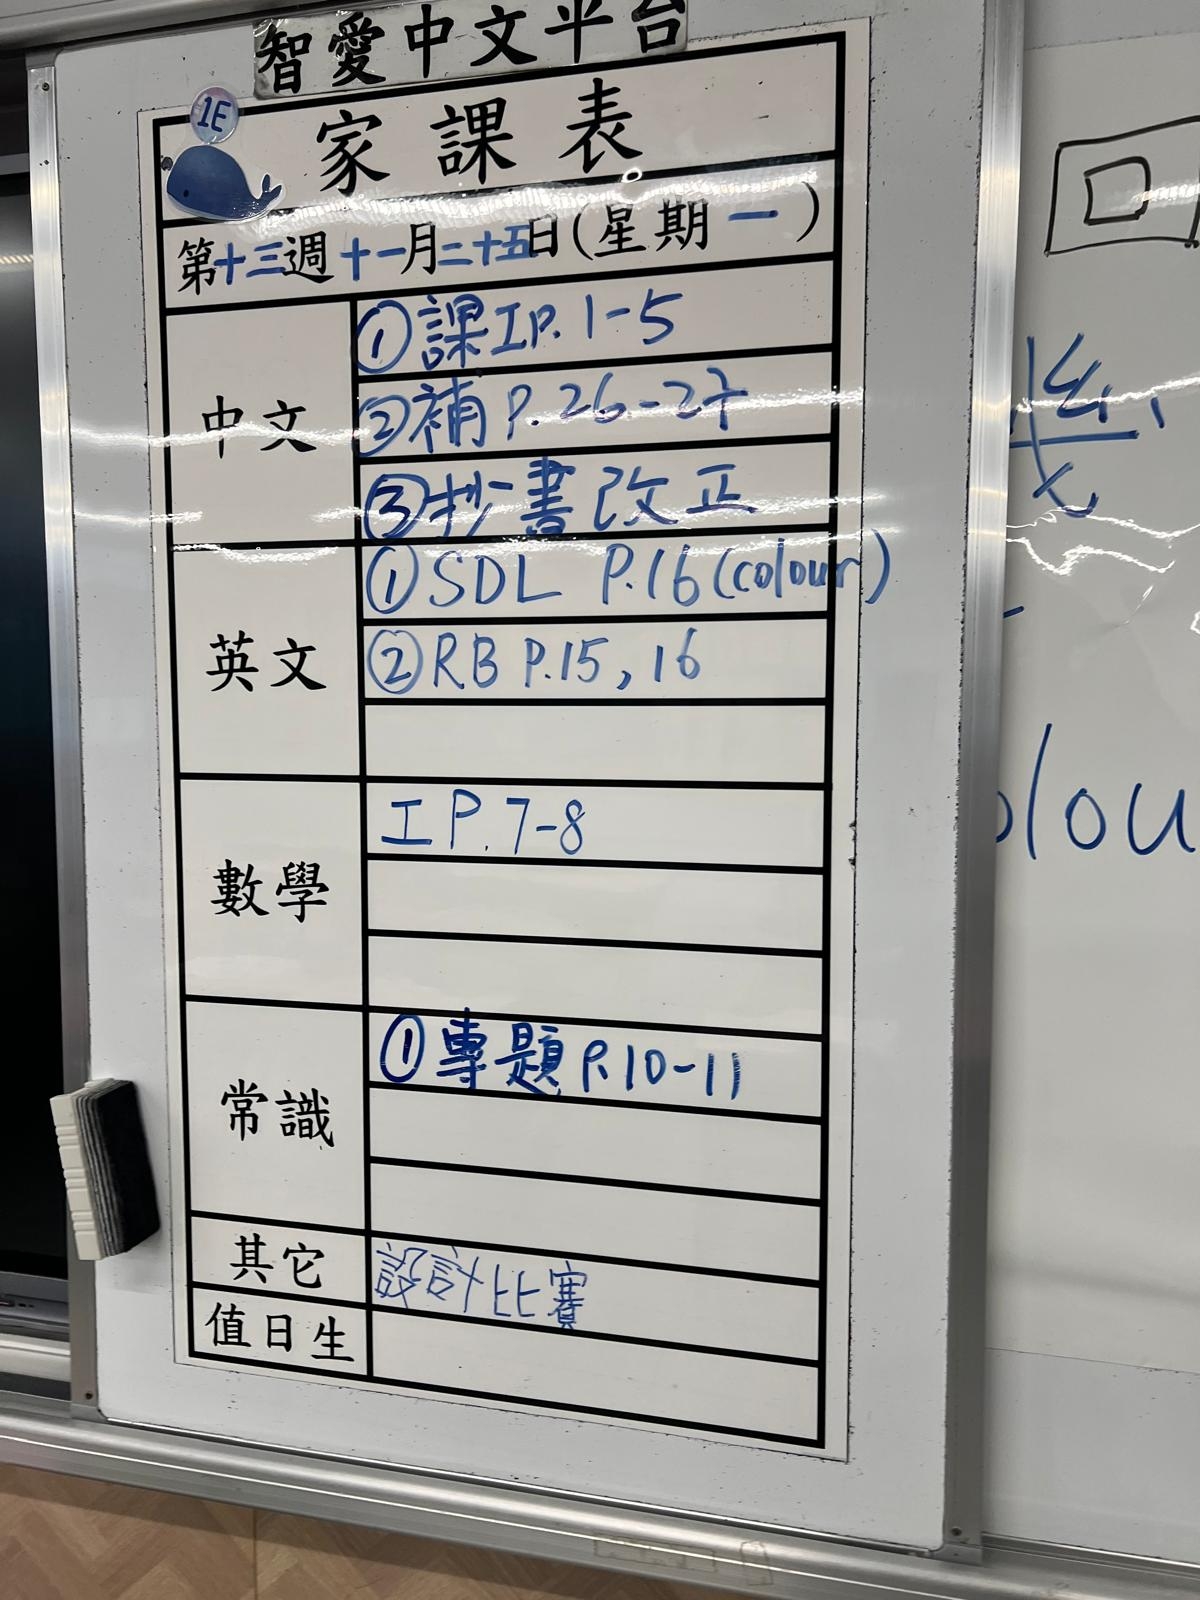 智愛中文平台
1E
家課表
第十三週十一月二十五日(星期一)
中文
①課工P.1-5
②補P.26-27
③抄書改正
英文
①SDL P.16(colour)
②RB P.15,16
數學
工P.7-8
常識
①專題P.10-11
其它
設計比賽
值日生
回
olou